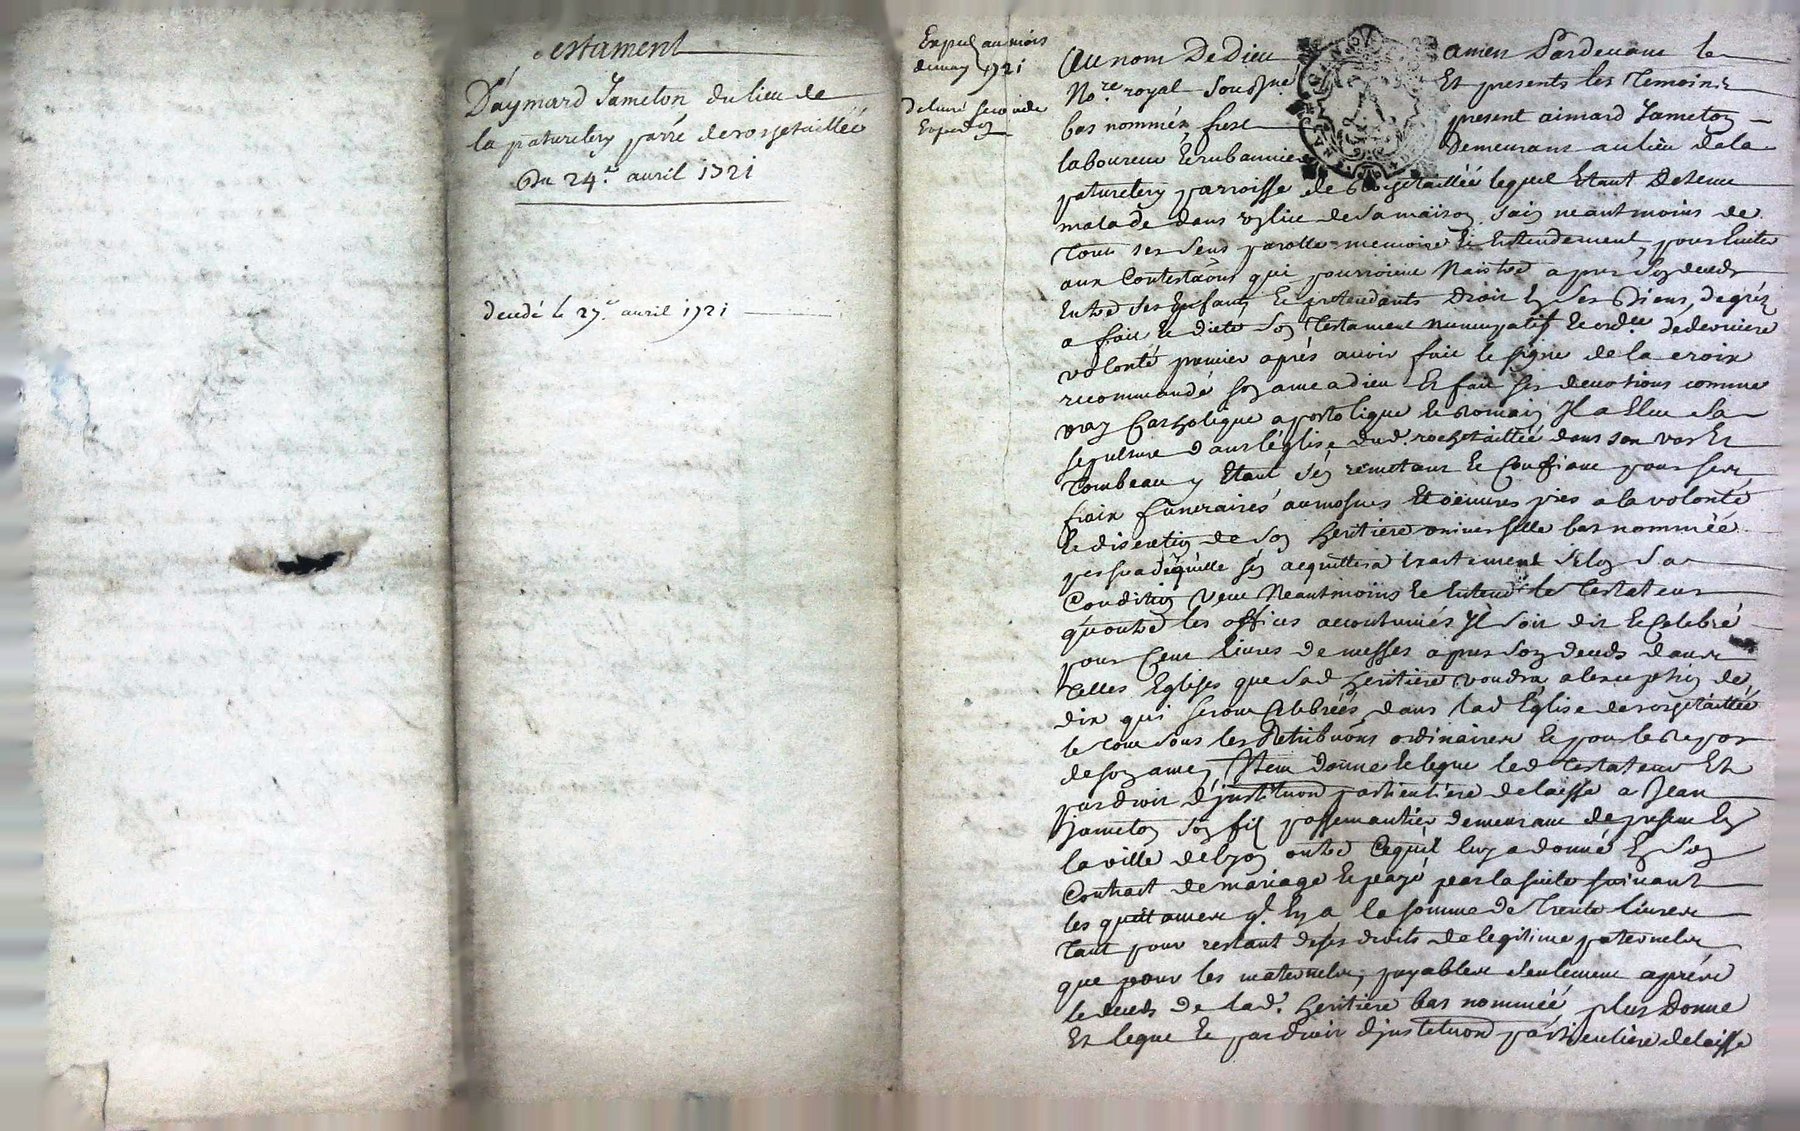 Testament
D'aymard Jameton du lieu de
la paturelery parre de rochetaillée
Du 24e. avril 1721
decedé le 27e. avril 1721
Expedié au mois
de may 1721
Delivré seconde
Expedon
Au nom De Dieu amen Pardevant le
Nore. royal Sousigné Et presents les Temoins
bas nommés fust present aimard Jameton
laboureur et rubannier Demeurant au lieu de la
paturelery parroisse de rochetaillée lequel Etant Detenu
malade dans de sa maison sain neantmoins de
tous ses sens parolle memoire et Entendement, pour Eviter
aux Contestaons qui pourroient Naistre apres son deceds
Entre ses Enfants et pretendants droit En ses Biens, de gré
a fait et dicté son Testament nuncupatif et ordce. de derniere
volonté premier aprés avoir fait le signe de la croix
recommandé son ame a dieu Et fait ses devotions comme
vray Catholique apostolique et Romain Il a Eleu sa
sepulture dans l'église dud. rochetaillée dans son vas Et
tombeau y Etant s'en remettant et Confiant pour ses
fraix funeraires aumosnes Et oeuvres pies a la volonté
et discretion de son heritiere universelle bas nommée
persuadé qu'elle s'en acquittera Exactement selon sa
Condition Veut Neantmoins et Entend le Testateur
qu'outre les offices accoutumés Il soit dit et Celebré
pour Cent livres de messes apres son deceds dans
telles Eglises que sad heritiere voudra a l'exception de
dix qui seront Celebrées dans lad Eglise de rochetaillée
le tout sous les Retribuons ordinaires et pour le Repos
de son ame, Item donne et legue led Testateur Et
par droit d'Instituon particuliere delaisse a Jean
Jameton son fils passemantier demeurant de present En
la ville de lyon outre Ce qu'il luy a donné En son
Contract de mariage et payé par la suite suivant
les quittances ql. En a la somme de Trente livres
tant pour restant de ses droits de legitime paternels
que pour les maternels, payables seulement aprés
le deceds de lad. heritiere bas nommée, plus Donne
Et legue et par droit d'Instituon particuliere delaisse